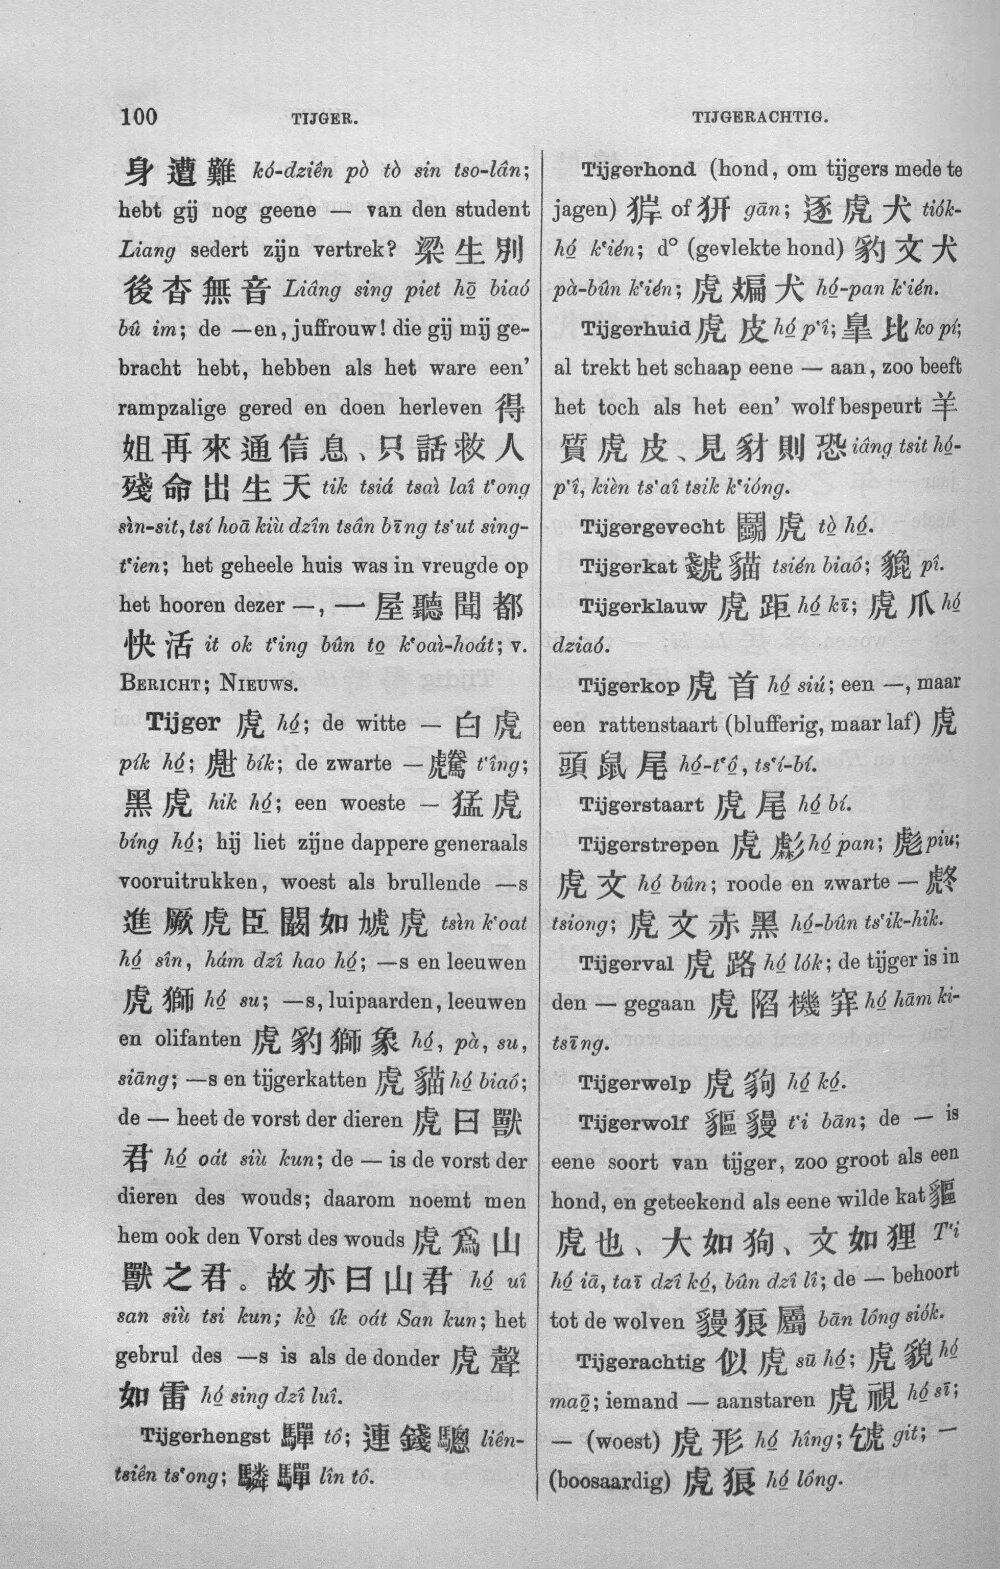 100
TIJGER.
TIJGERACHTIG.
身 遭 難 kó-dziên pò tò sin tso-lân;
hebt gij nog geene — van den student
Liang sedert zijn vertrek? 梁 生 別
後 杳 無 音 Liâng sing piet hō biaó
bû im; de —en, juffrouw! die gij mij ge-
bracht hebt, hebben als het ware een’
rampzalige gered en doen herleven 得
姐 再 來 通 信 息、只 話 救 人
殘 命 出 生 天 tik tsiá tsaì laî t‘ong
sìn-sit, tsí hoā kiù dzîn tsân bīng ts‘ut sing-
t‘ien; het geheele huis was in vreugde op
het hooren dezer —, 一 屋 聽 聞 都
快 活 it ok t‘ing bûn to̱ k‘oaì-hoát; v.
BERICHT; NIEUWS.
Tijger 虎 hó̱; de witte — 白 虎
pík hó̱; 虪 bík; de zwarte — t‘îng;
黑 虎 hik hó̱; een woeste — 猛 虎
bíng hó̱; hij liet zijne dappere generaals
vooruitrukken, woest als brullende —s
進 厥 虎 臣 闞 如 虓 虎 tsìn k‘oat
hó̱ sîn, hám dzî hao hó̱; —s en leeuwen
虎 獅 hó̱ su; —s, luipaarden, leeuwen
en olifanten 虎 豹 獅 象 hó̱, pà, su,
siāng; —s en tijgerkatten 虎 貓 hó̱ biaó;
de — heet de vorst der dieren 虎 曰 獸
君 hó̱ oát siù kun; de — is de vorst der
dieren des wouds; daarom noemt men
hem ook den Vorst des wouds 虎 爲 山
獸 之 君。故 亦 曰 山 君 hó̱ uî
san siù tsi kun; kò̱ ík oát San kun; het
gebrul des —s is als de donder 虎 聲
如 雷 hó̱ sing dzî luî.
Tijgerhengst 驒 tô; 連 錢 驄 liên-
tsiên ts‘ong; 驎 驒 lîn tô.
Tijgerhond (hond, om tijgers mede te
jagen) 犴 of 豜 gān; 逐 虎 犬 tiók-
hó̱ k‘ién; d° (gevlekte hond) 豹 文 犬
pà-bûn k‘ién; 虎 斒 犬 hó̱-pan k‘ién.
Tijgerhuid 虎 皮 hó̱ p‘î; 臯 比 ko pí;
al trekt het schaap eene — aan, zoo beeft
het toch als het een’ wolf bespeurt 羊
質 虎 皮、見 豺 則 恐 iâng tsit hó̱-
p‘î, kièn ts‘aî tsik k‘ióng.
Tijgergevecht 鬭 虎 tò̱ hó̱.
Tijgerkat 虥 貓 tsién biaó; 貔 pî.
Tijgerklauw 虎 距 hó̱ kī; 虎 爪 hó̱
dziaó.
Tijgerkop 虎 首 hó̱ siú; een —, maar
een rattenstaart (blufferig, maar laf) 虎
頭 鼠 尾 hó̱-t‘ó̱, ts‘í-bí.
Tijgerstaart 虎 尾 hó̱ bí.
Tijgerstrepen 虎 hó̱ pan; 彪 piu;
虎 文 hó̱ bûn; roode en zwarte —
tsiong; 虎 文 赤 黑 hó̱-bûn ts‘ik-hik.
Tijgerval 虎 路 hó̱ lók; de tijger is in
den — gegaan 虎 陷 機 穽 hó̱ hām ki-
tsīng.
Tijgerwelp 虎 豿 hó̱ kó̱.
Tijgerwolf 貙 獌 t‘i bān; de — is
eene soort van tijger, zoo groot als een
hond, en geteekend als eene wilde kat 貙
虎 也、大 如 狗、文 如 狸 T‘i
hó̱ iā, taī dzî kó̱, bûn dzî lî; de — behoort
tot de wolven 獌 狼 屬 bān lông siók.
Tijgerachtig 似 虎 sū hó̱; 虎 貌 hó̱
maō̱; iemand — aanstaren 虎 視 hó̱ sī;
— (woest) 虎 形 hó̱ hîng; 虓 git; —
(boosaardig) 虎 狼 hó̱ lông.